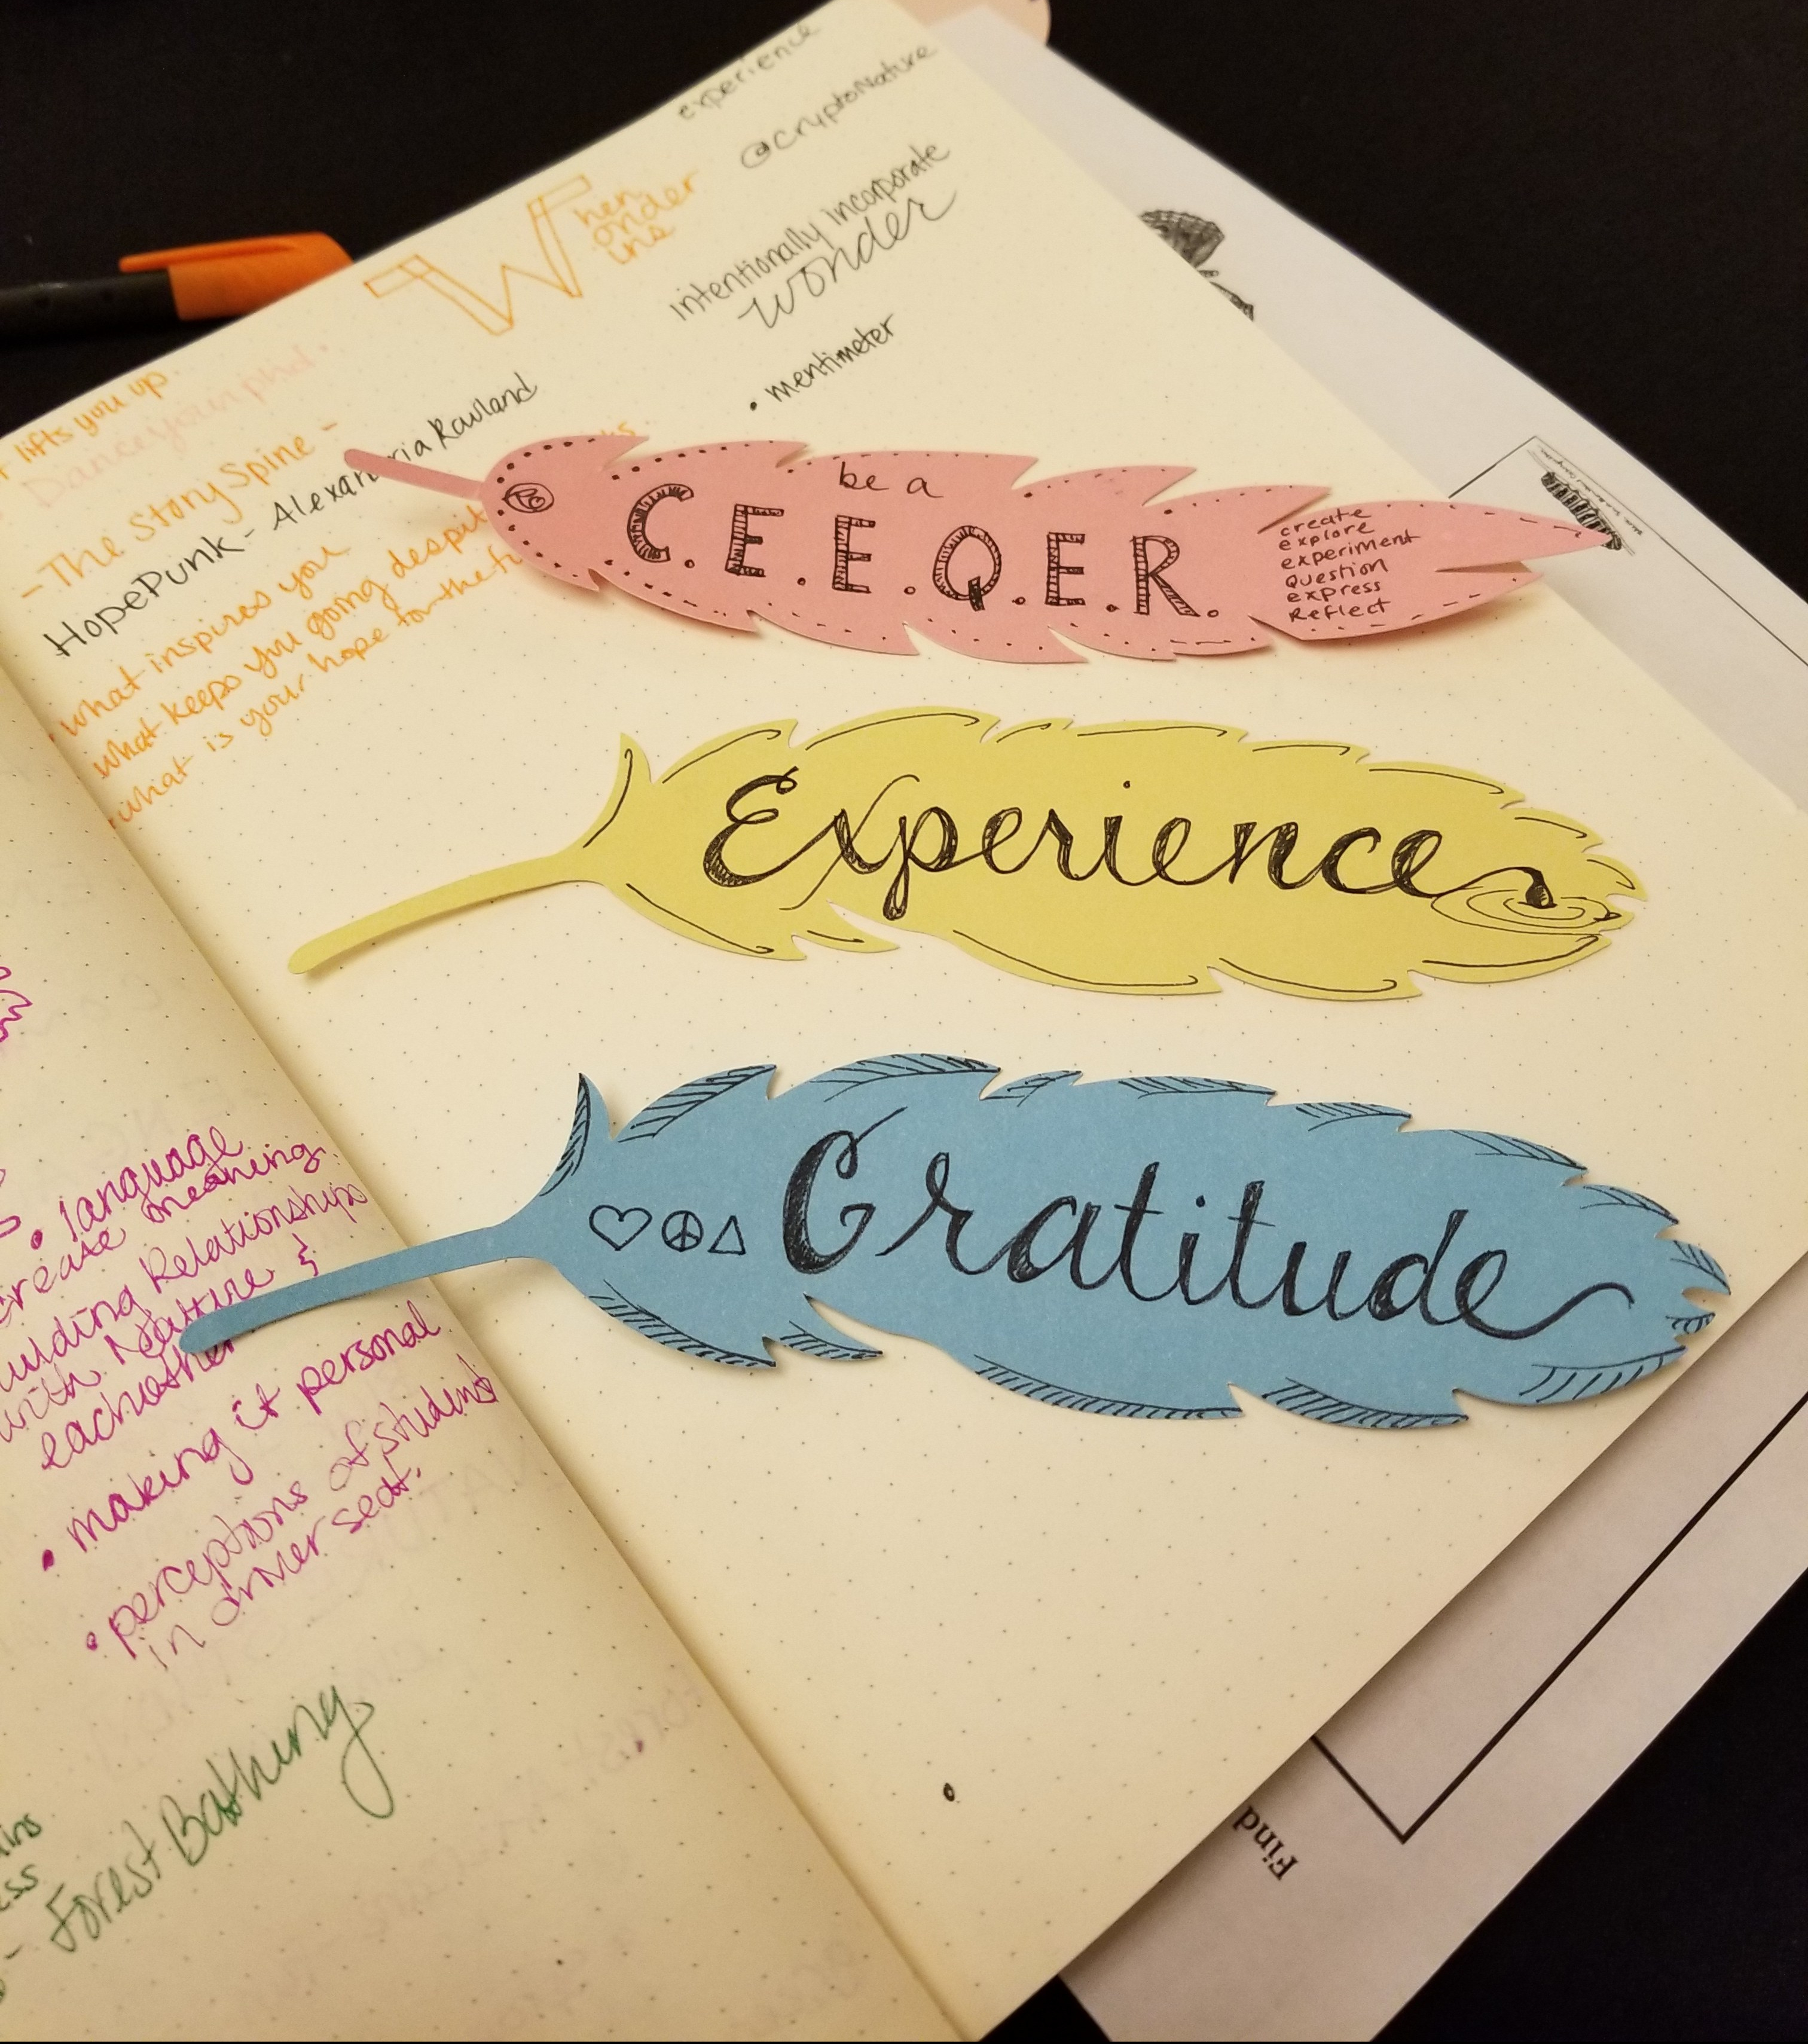 experience
@CryptoNature
When
Wonder
Wins
intentionally incorporate
wonder
• mentimeter
lifts you up.
Dance your phd.
- The Story Spine -
HopePunk - Alexandria Rowland
• what inspires you
what keeps you going despite
• what is your hope for the
be a
C.E.E.Q.E.R.
create
explore
experiment
Question
express
Reflect
Experience
Gratitude
• language
create meaning
building Relationships
with Nature &
eachother
• making it personal
• perceptions of student
in driver seat.
- Forest Bathing
Find